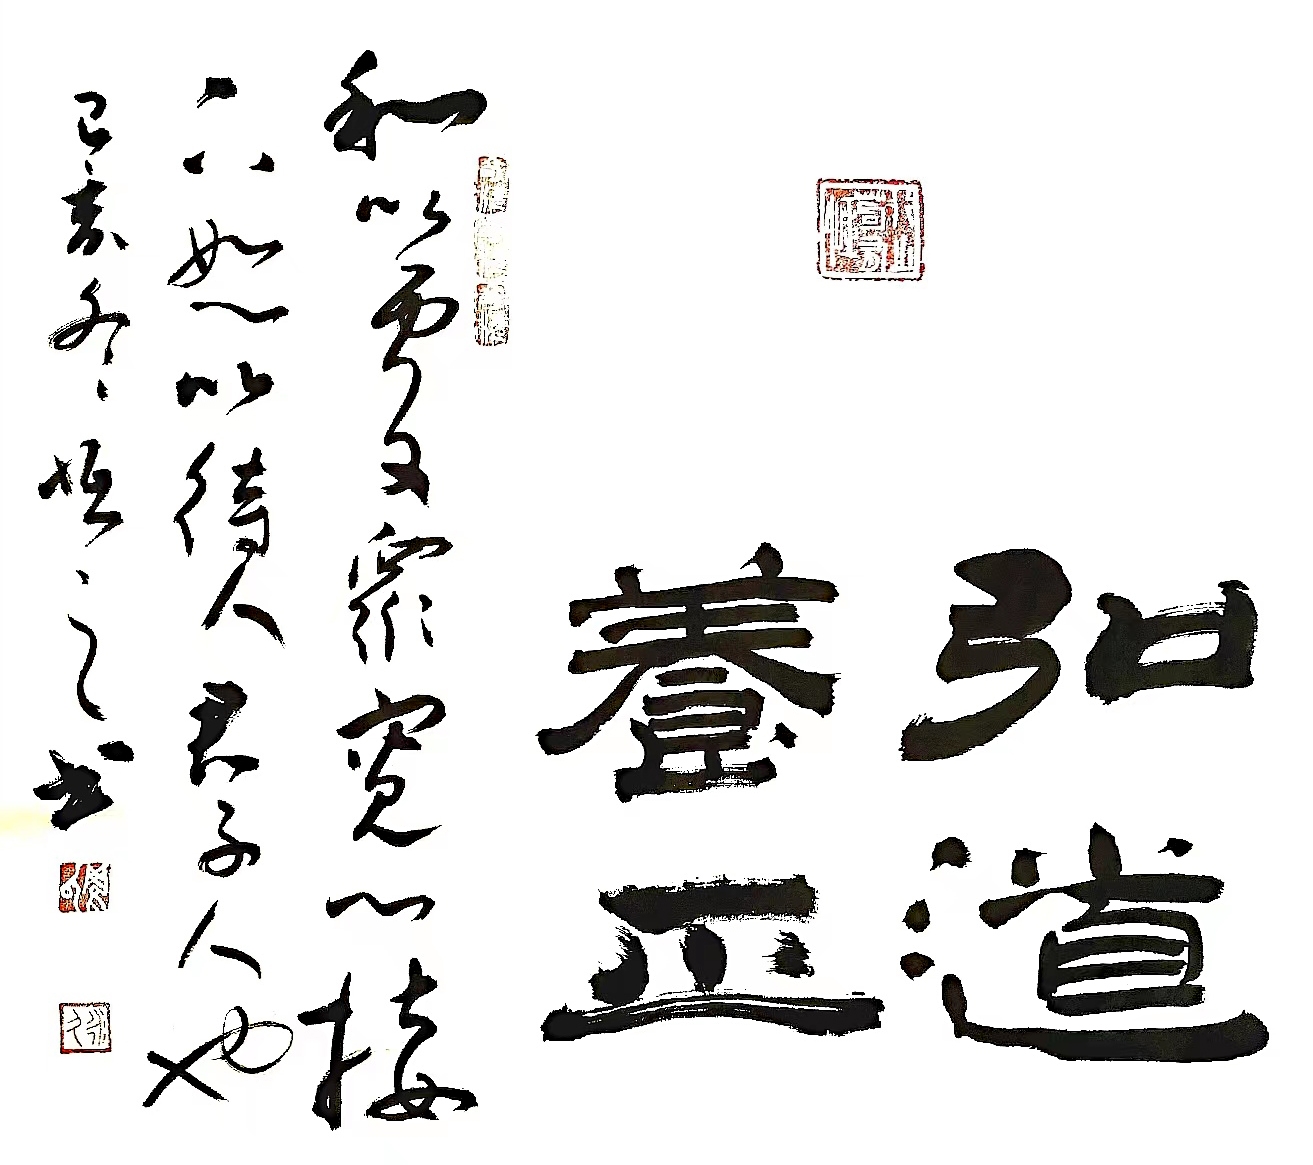 弘道
養正
和以處衆寬以接
下恕以待人君子人也
己亥冬恒之书